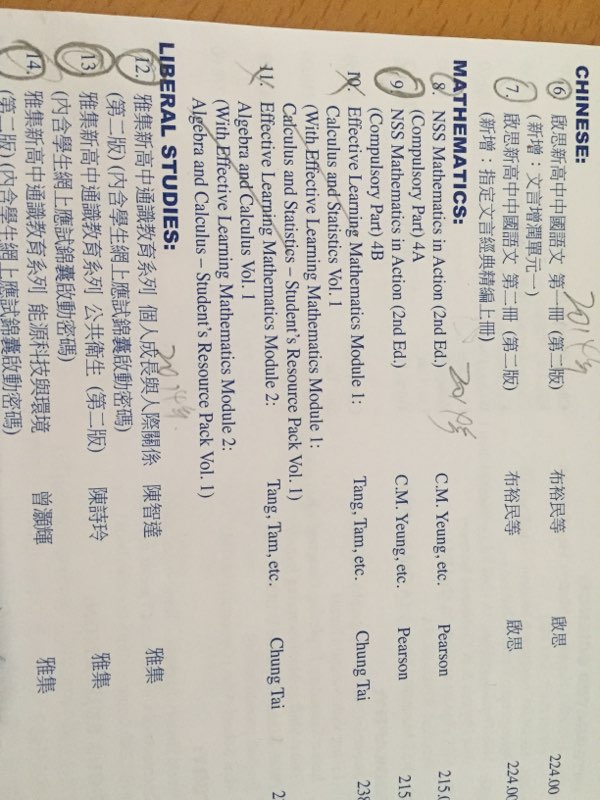 CHINESE:
6. 啟思新高中中國語文 第一冊 (第二版) 布裕民等 啟思 224.00
(新增：文言增潤單元一)
7. 啟思新高中中國語文 第二冊 (第二版) 布裕民等 啟思 224.00
(新增：指定文言經典精編上冊)
MATHEMATICS:
8. NSS Mathematics in Action (2nd Ed.) C.M. Yeung, etc. Pearson 215.
(Compulsory Part) 4A
9. NSS Mathematics in Action (2nd Ed.) C.M. Yeung, etc. Pearson 215
(Compulsory Part) 4B
10. Effective Learning Mathematics Module 1: Tang, Tam, etc. Chung Tai 238
Calculus and Statistics Vol. 1
(With Effective Learning Mathematics Module 1:
Calculus and Statistics – Student's Resource Pack Vol. 1)
11. Effective Learning Mathematics Module 2: Tang, Tam, etc. Chung Tai
Algebra and Calculus Vol. 1
(With Effective Learning Mathematics Module 2:
Algebra and Calculus – Student's Resource Pack Vol. 1)
LIBERAL STUDIES:
12. 雅集新高中通識教育系列 個人成長與人際關係 陳智達 雅集
(第二版) (內含學生網上應試錦囊啟動密碼)
13. 雅集新高中通識教育系列 公共衛生 (第二版) 陳詩玲 雅集
(內含學生網上應試錦囊啟動密碼)
14. 雅集新高中通識教育系列 能源科技與環境 曾灝輝 雅集
(第二版) (內含學生網上應試錦囊啟動密碼)